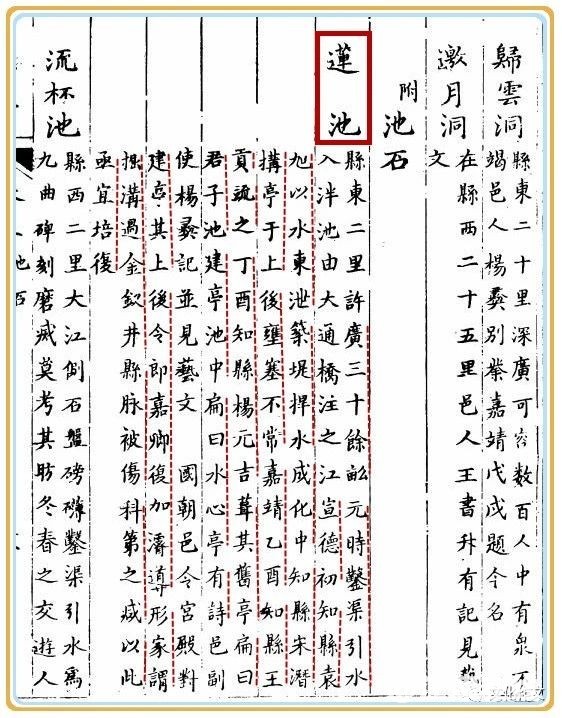 歸雲洞
縣東二十里深廣可容数百人中有泉不
竭邑人楊彝别業嘉靖戊戌題今名
邀月洞
在縣西二十五里邑人王書升有記見藝
文
附池石
蓮池
縣東二里許廣三十餘畆元時鑿渠引水
入泮池由大通橋注之江宣德初知縣袁
旭以水東泄築堤捍水成化中知縣宋潛
搆亭于上後壅塞不常嘉靖乙酉知縣王
貢疏之丁酉知縣楊元吉葺其舊亭扁曰
君子池建亭池中扁曰水心亭有詩邑副
使楊彝記並見藝文 國朝邑令宮殿對
建亭其上後令郎嘉卿復加濬導形家謂
掘溝過金釵井縣脉被傷科第之减以此
亟宜培復
流杯池
縣西二里大江側石盤磅礴鑿渠引水為
九曲碑刻磨滅莫考其昉冬春之交遊人